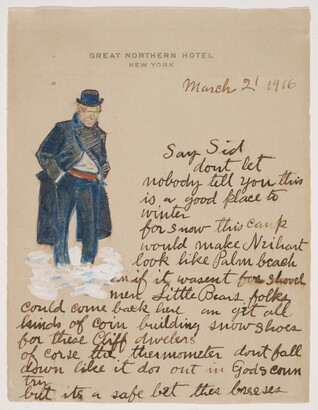 GREAT NORTHERN HOTEL
NEW YORK
March 21 1916
Say Sid
dont let
nobody tell you this
is a good place to
winter
for snow this camp
would make Neihart
look like Palm beach
an if it wasent for shovel
men Little Bears folks
could come back here an get all
kinds of coin building snow shoes
for these Cliff dwelers
of corse the thermometer dont fall
down like it dos out in Gods coun
try
but its a safe bet thes breeses